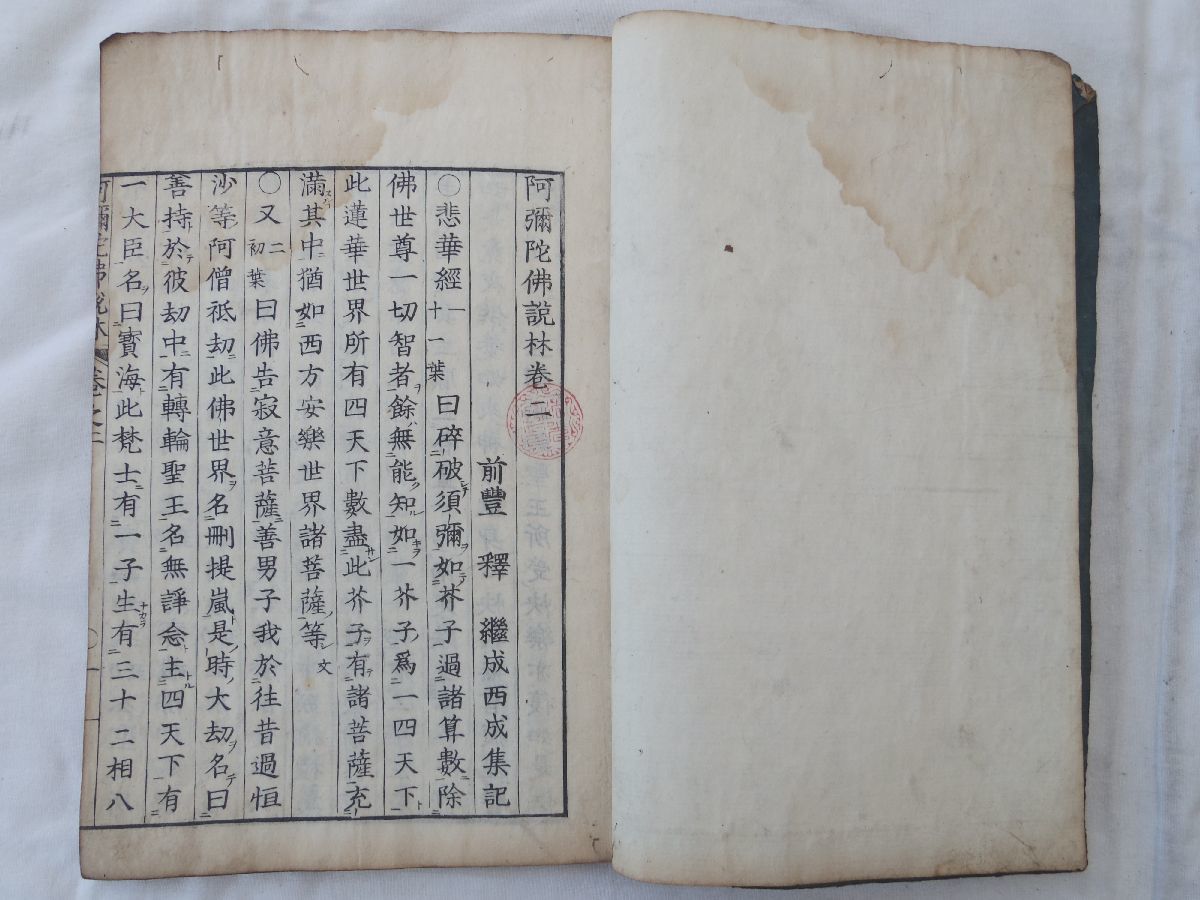 阿彌陀佛說林卷二
前豐 釋 繼成西成集記
〇悲華經一十一葉曰碎破須彌如芥子過諸算數除
佛世尊一切智者餘無能知如一芥子爲一四天下
此蓮華世界所有四天下數盡此芥子有諸菩薩充
滿其中猶如西方安樂世界諸菩薩等文
〇又二初葉曰佛告寂意菩薩善男子我於往昔過恒
沙等阿僧祇劫此佛世界名刪提嵐是時大劫名曰
善持於彼劫中有轉輪聖王名無諍念主四天下有
一大臣名曰寳海此梵士有一子生有三十二相八
阿彌陀佛說林 卷之二 〇一